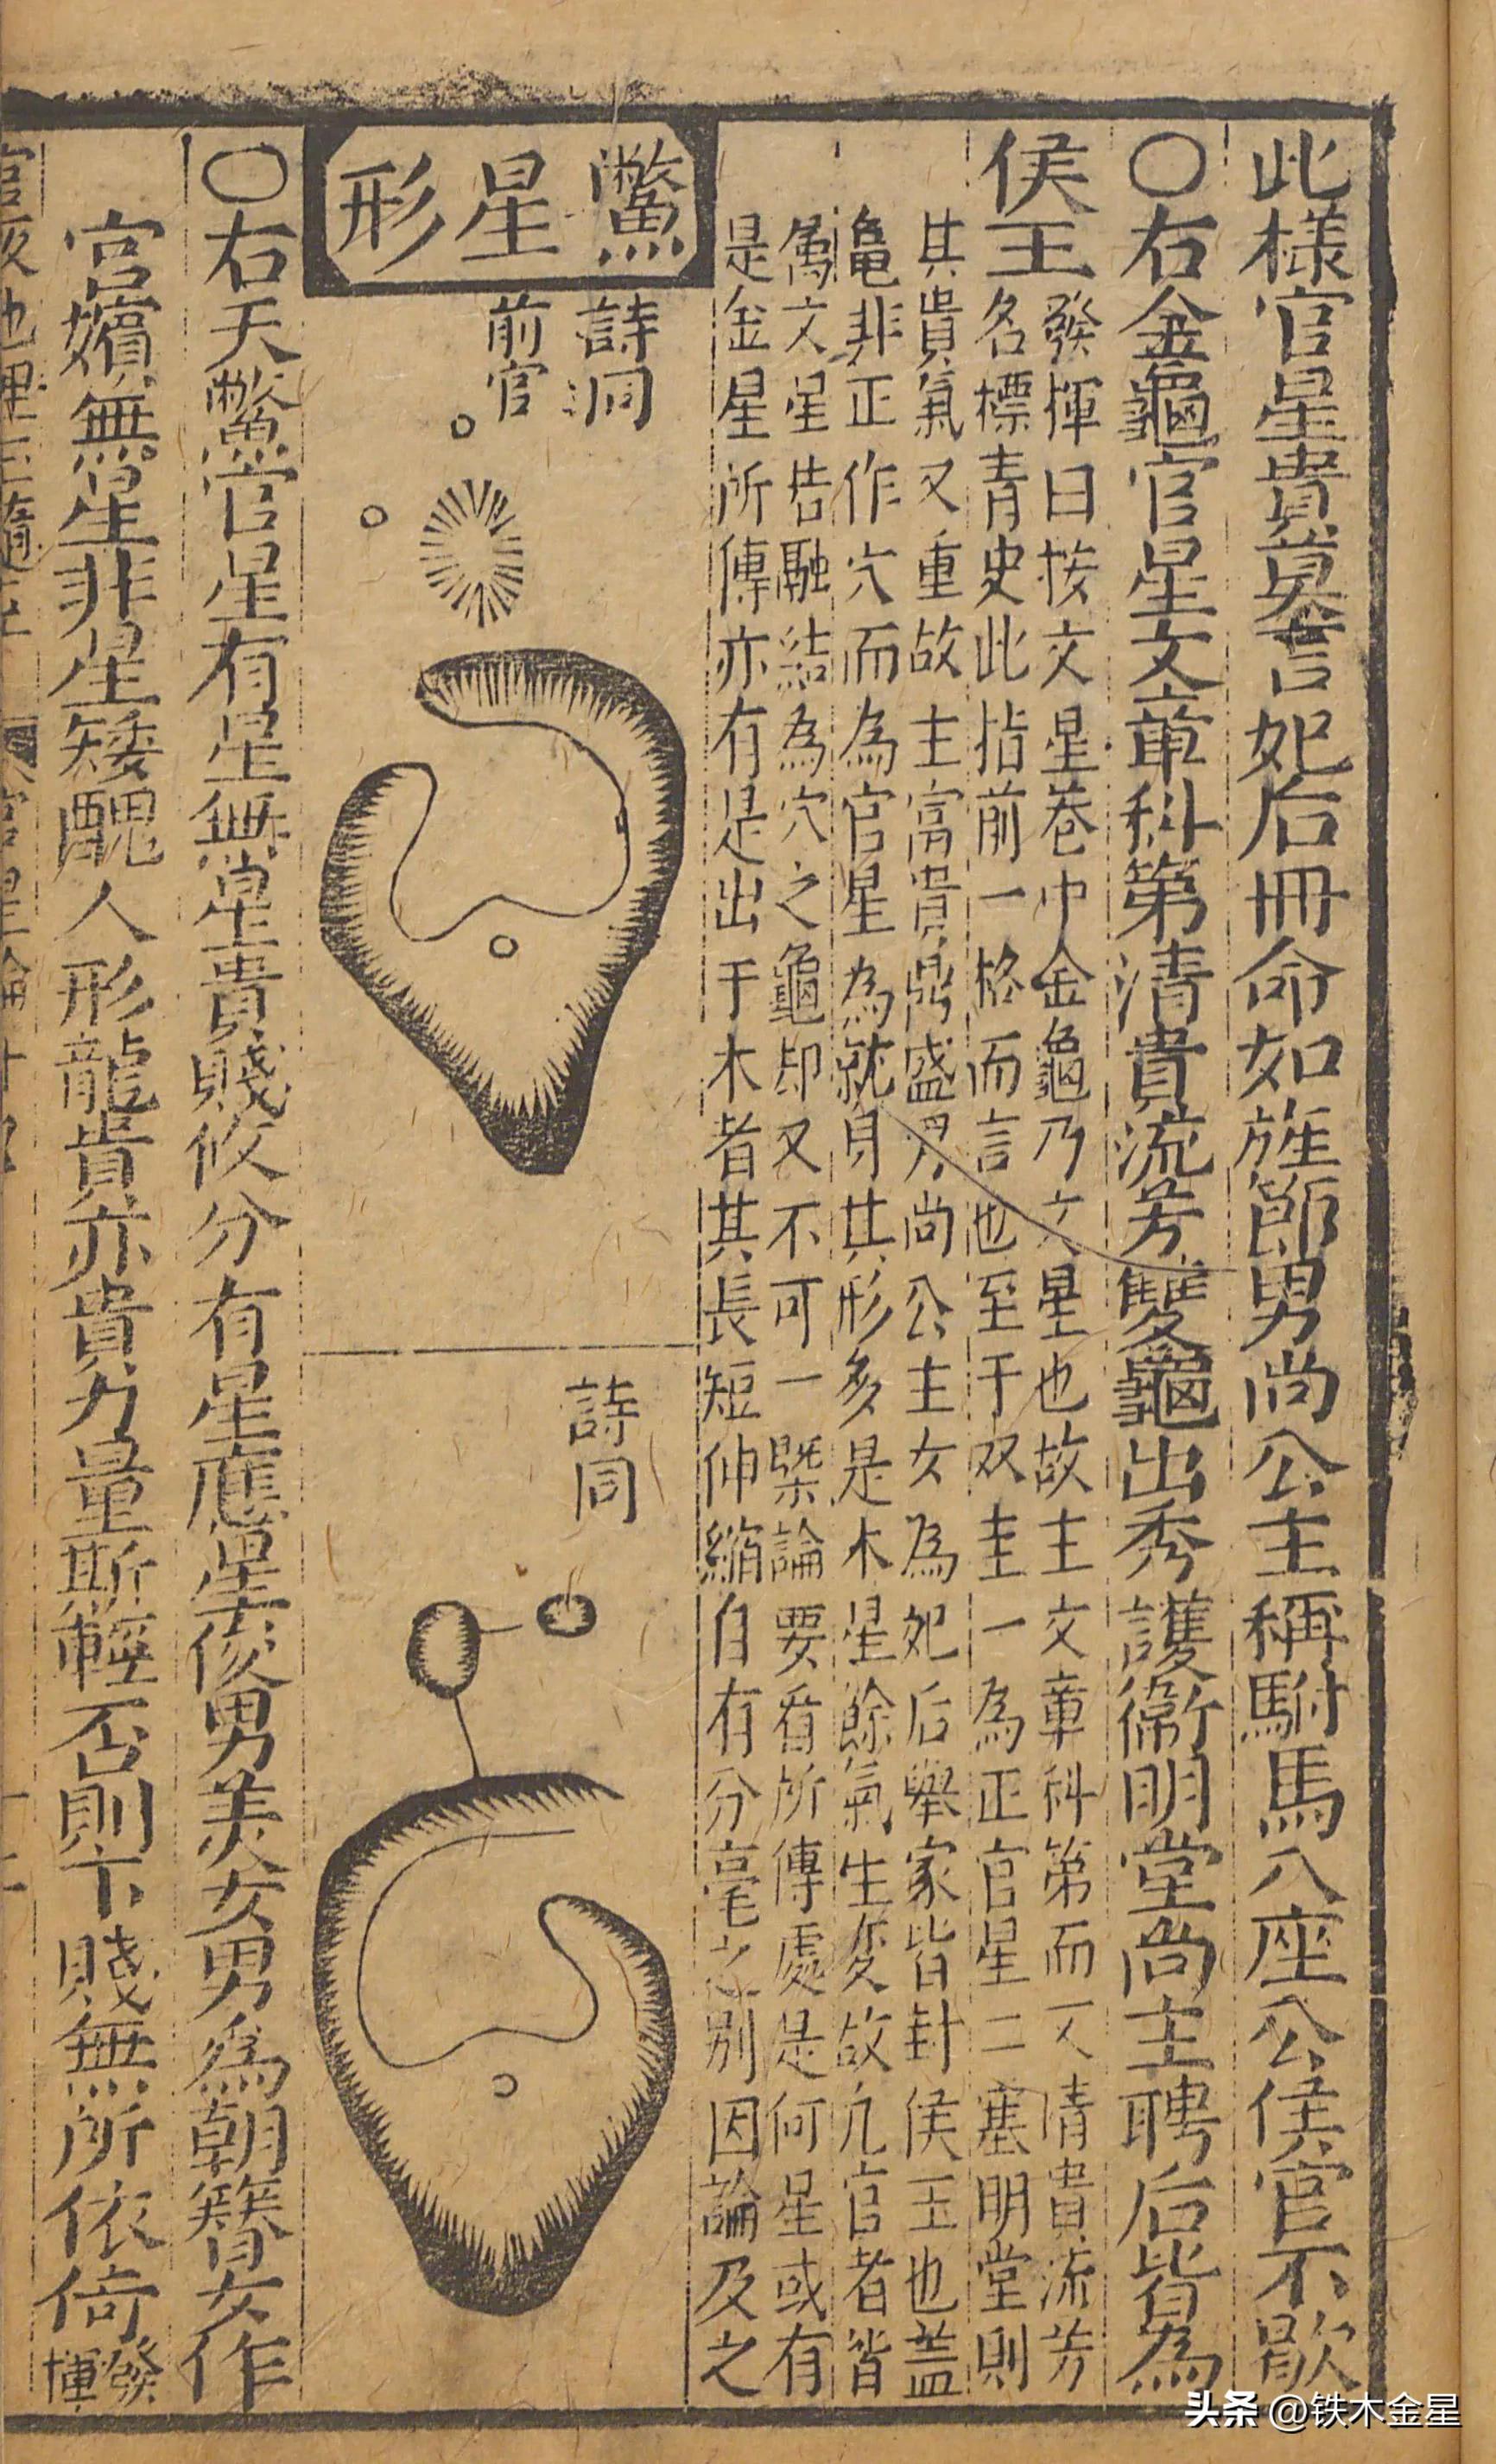 此樣官星貴莫言妃后冊命如旌節男尚公主稱駙馬八座公侯官不歇
○右金龜官星文章科第清貴流芳雙龜出秀護衞明堂尚主聘后皆為
侯王
發揮曰按文星卷中金龜乃文星也故主文章科第而又清貴流芳
名標青史此指前一格而言也至于双圭一為正官星二塞明堂則
其貴氣又重故主富貴鼎盛男尚公主女為妃后舉家皆封侯王也蓋
龜非正作穴而為官星為就身其形多是木星餘氣生変故凢官者皆
屬文星若融結為穴之龜却又不可一槩論要看所傳處是何星或有
是金星所傳亦有是出于木者其長短伸縮自有分毫之别因論及之
鱉星形
詩洞
前官
詩同
○右天鱉官星有星無星貴賤攸分有星應星俊男美女男為朝簪女作
宫嬪無星非星矮醜人形龍貴亦貴力量斯輕否則下賤無所依倚
發揮